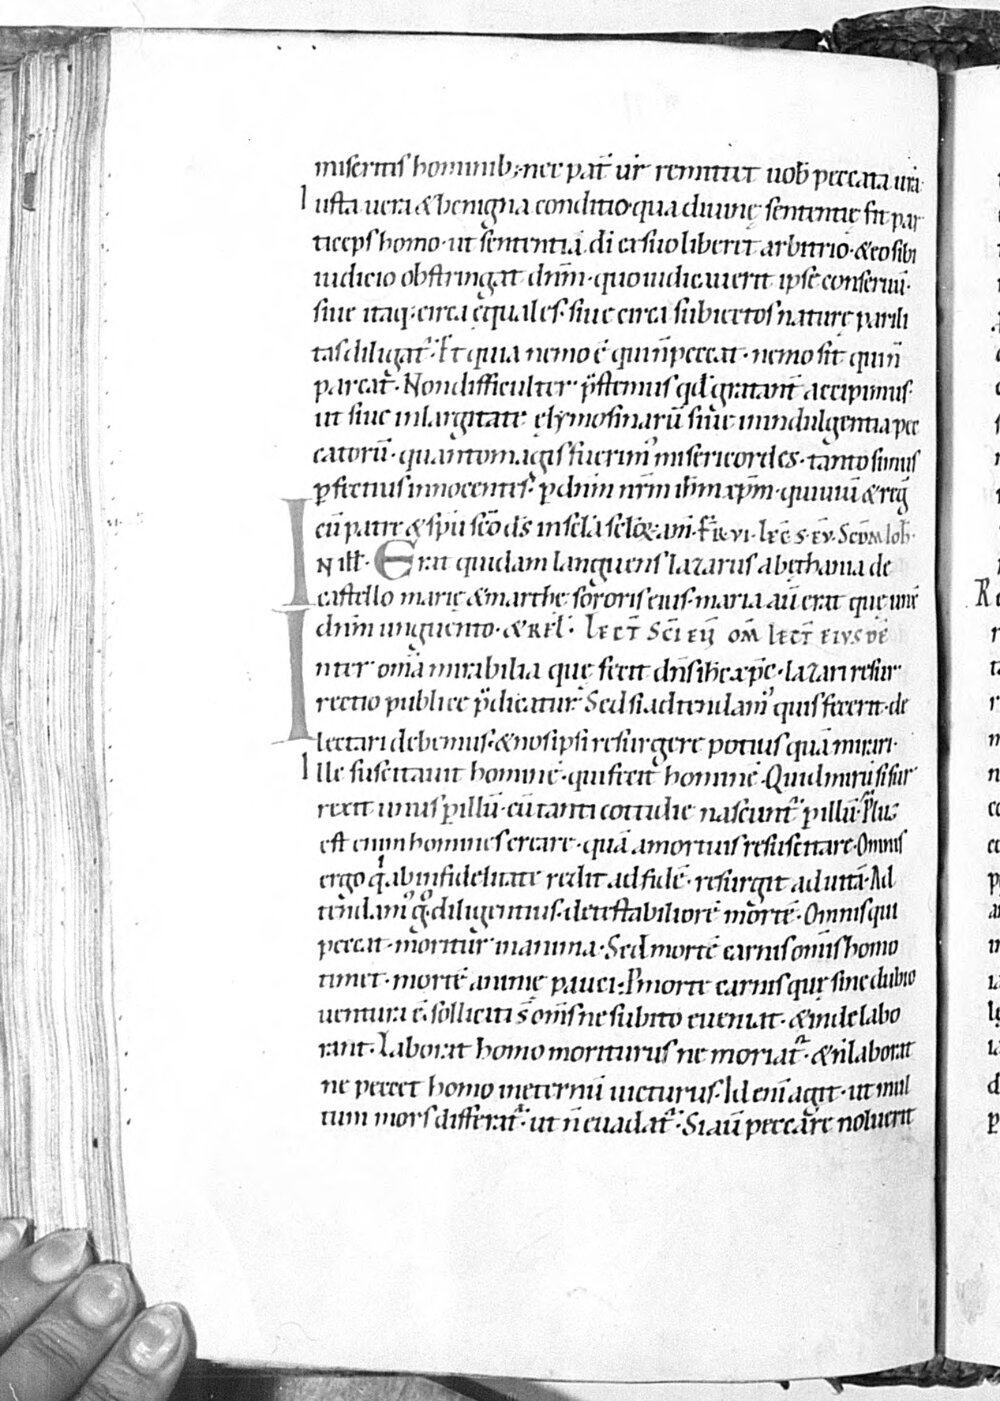 miseritis hominib; nec pat̄ ur̄ remittet uob̄ peccata ur̄a·
Iusta uera & benigna conditio· qua diuinę sententię fit par
ticeps homo· ut sententiā di ex suo liberet arbitrio· & eo sibi
iudicio obstringat dnm̄· quo iudicauerit ipse conseruū·
siue itaq; circa ęquales· siue circa subiectos naturę parili
tas diligat᷑· Et quia nemo ē qui n̄ peccat· nemo sit qui n̄
parcat· Non difficulter p̄stemus qd̄ gratant̄ accipimus·
ut siue in largitate elymosinarū siue in indulgentia pec
catorū· quanto magis fuerim᾽ misericordes· tanto simus
ꝑfectius innocentes· ꝑ dnm̄ nrm̄ ihm̄ xpm̄· qui uiuit & reg̃
cū patre & spū scō ds̄ in scl̄a sclo̅ꝝ· am̄· FR̄· VI· LEC̄S· EV̄· SCDM̄ IOH̄·
N ill̄· Erat quidam languens lazarus a bethania de
castello marię & marthe sororis eius· maria aū erat quę unx̄
dnm̄ unguento· & REL̄· LECT̄ SC̄I EV̄ OM̄ LECT̄ EIVSDĒ
Inter om̄a mirabilia quę fecit dn̄s ihc̄ xpc̄· lazari resur
rectio publice p̄dicatur· Sed si adtendam᾽ quis fecerit· de
lectari debemus· & nos ipsi resurgere potius quā mirari·
Ille suscitauit hominē· qui fecit hominē· Quid mirū si sur
rexit unus ꝑ illū· cū tanti cottidie nascunt᷑ ꝑ illū· Plus
est enim homines creare· quā a mortuis resuscitare· Omnis
ergo qui ab infidelitate redit ad fidē· resurgit ad uitā· Ad
tendam᾽ g̊ diligentius· detestabiliorē mortē· Omnis qui
peccat· moritur in anima· Sed mortē carnis om̄is homo
timet· mortē animę pauci· P morte carnis quę sine dubio
uentura ē· solliciti s̄ om̄s ne subito eueniat· & inde labo
rant· Laborat homo moriturus ne moriat᷑· & n̄ laborat
ne peccet homo in eternū uicturus· Id enī agit· ut mul
tum mors differat᷑· ut n̄ euadat᷑· Si aū peccare noluerit